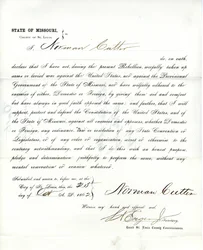 STATE OF MISSOURI,
I, Norman Cutter
do on oath
declare that I have not, during the present Rebellion, wilfully taken up
arms or levied war against the United States, nor against the Provisional
Government of the State of Missouri, nor have wilfully adhered to the
enemies of either, Domestic or Foreign, by giving them aid and comfort
but have always in good faith opposed the same; and further, that I will
support, protect and defend the Constitution of the United States, and of
the State of Missouri, against all enemies and opposers, whether Domestic
or Foreign, any ordinance, law or resolution of any State Convention or
Legislature, or of any order or organization, secret or otherwise to the
contrary notwithstanding; and that I do this with an honest purpose,
pledge and determination, faithfully to perform the same, without any
mental reservation or evasion whatever.
Subscribed and sworn to before me, at the
City of St. Louis, this the
day of A. D. 1862
Norman Cutter